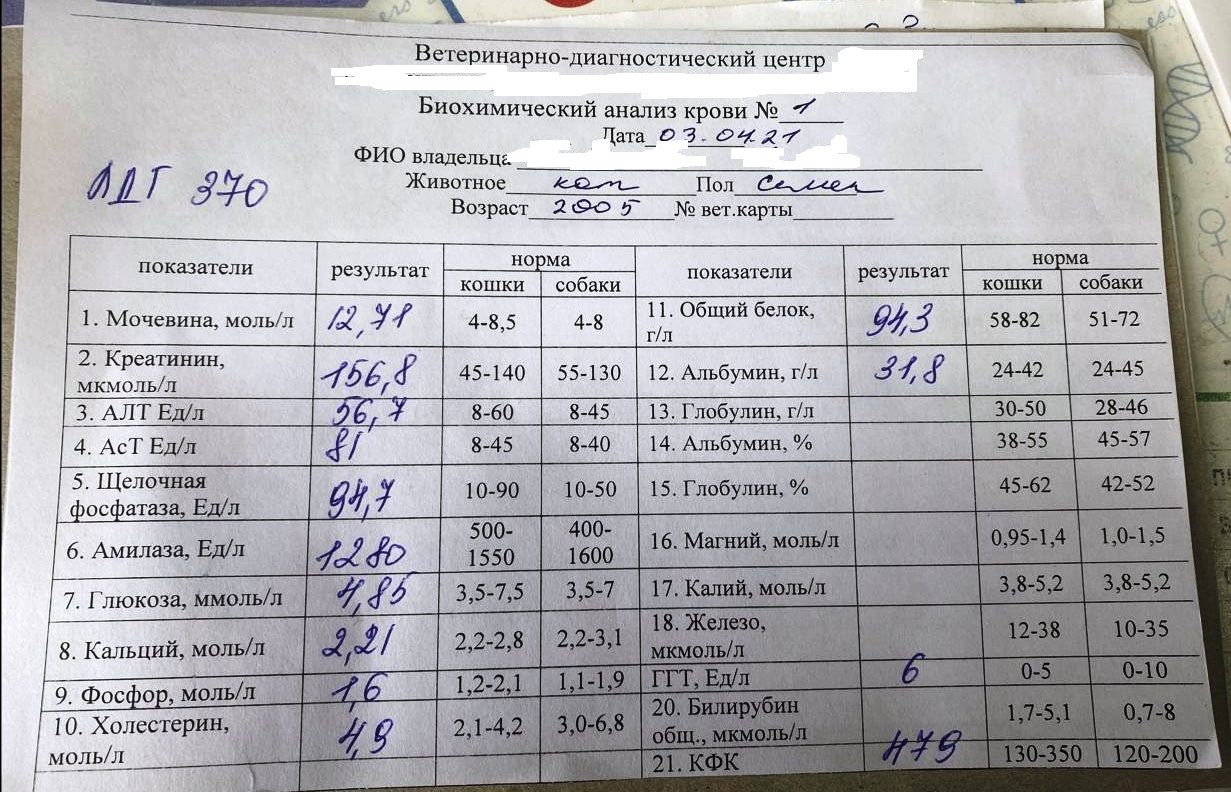 Ветеринарно-диагностический центр
Биохимический анализ крови № 1
Дата 03.04.21
ФИО владельца
ЛДГ 370
Животное кот Пол Семен
Возраст 2005 № вет.карты
показатели результат норма показатели результат норма
кошки собаки кошки собаки
1. Мочевина, моль/л 12,71 4-8,5 4-8 11. Общий белок, г/л 94,3 58-82 51-72
2. Креатинин, мкмоль/л 156,8 45-140 55-130 12. Альбумин, г/л 31,8 24-42 24-45
3. АЛТ Ед/л 56,7 8-60 8-45 13. Глобулин, г/л 30-50 28-46
4. АсТ Ед/л 81 8-45 8-40 14. Альбумин, % 38-55 45-57
5. Щелочная фосфатаза, Ед/л 94,7 10-90 10-50 15. Глобулин, % 45-62 42-52
6. Амилаза, Ед/л 1280 500-1550 400-1600 16. Магний, моль/л 0,95-1,4 1,0-1,5
7. Глюкоза, ммоль/л 4,85 3,5-7,5 3,5-7 17. Калий, моль/л 3,8-5,2 3,8-5,2
8. Кальций, моль/л 2,21 2,2-2,8 2,2-3,1 18. Железо, мкмоль/л 12-38 10-35
9. Фосфор, моль/л 1,6 1,2-2,1 1,1-1,9 ГГТ, Ед/л 6 0-5 0-10
10. Холестерин, моль/л 4,9 2,1-4,2 3,0-6,8 20. Билирубин общ., мкмоль/л 1,7-5,1 0,7-8
21. КФК 479 130-350 120-200